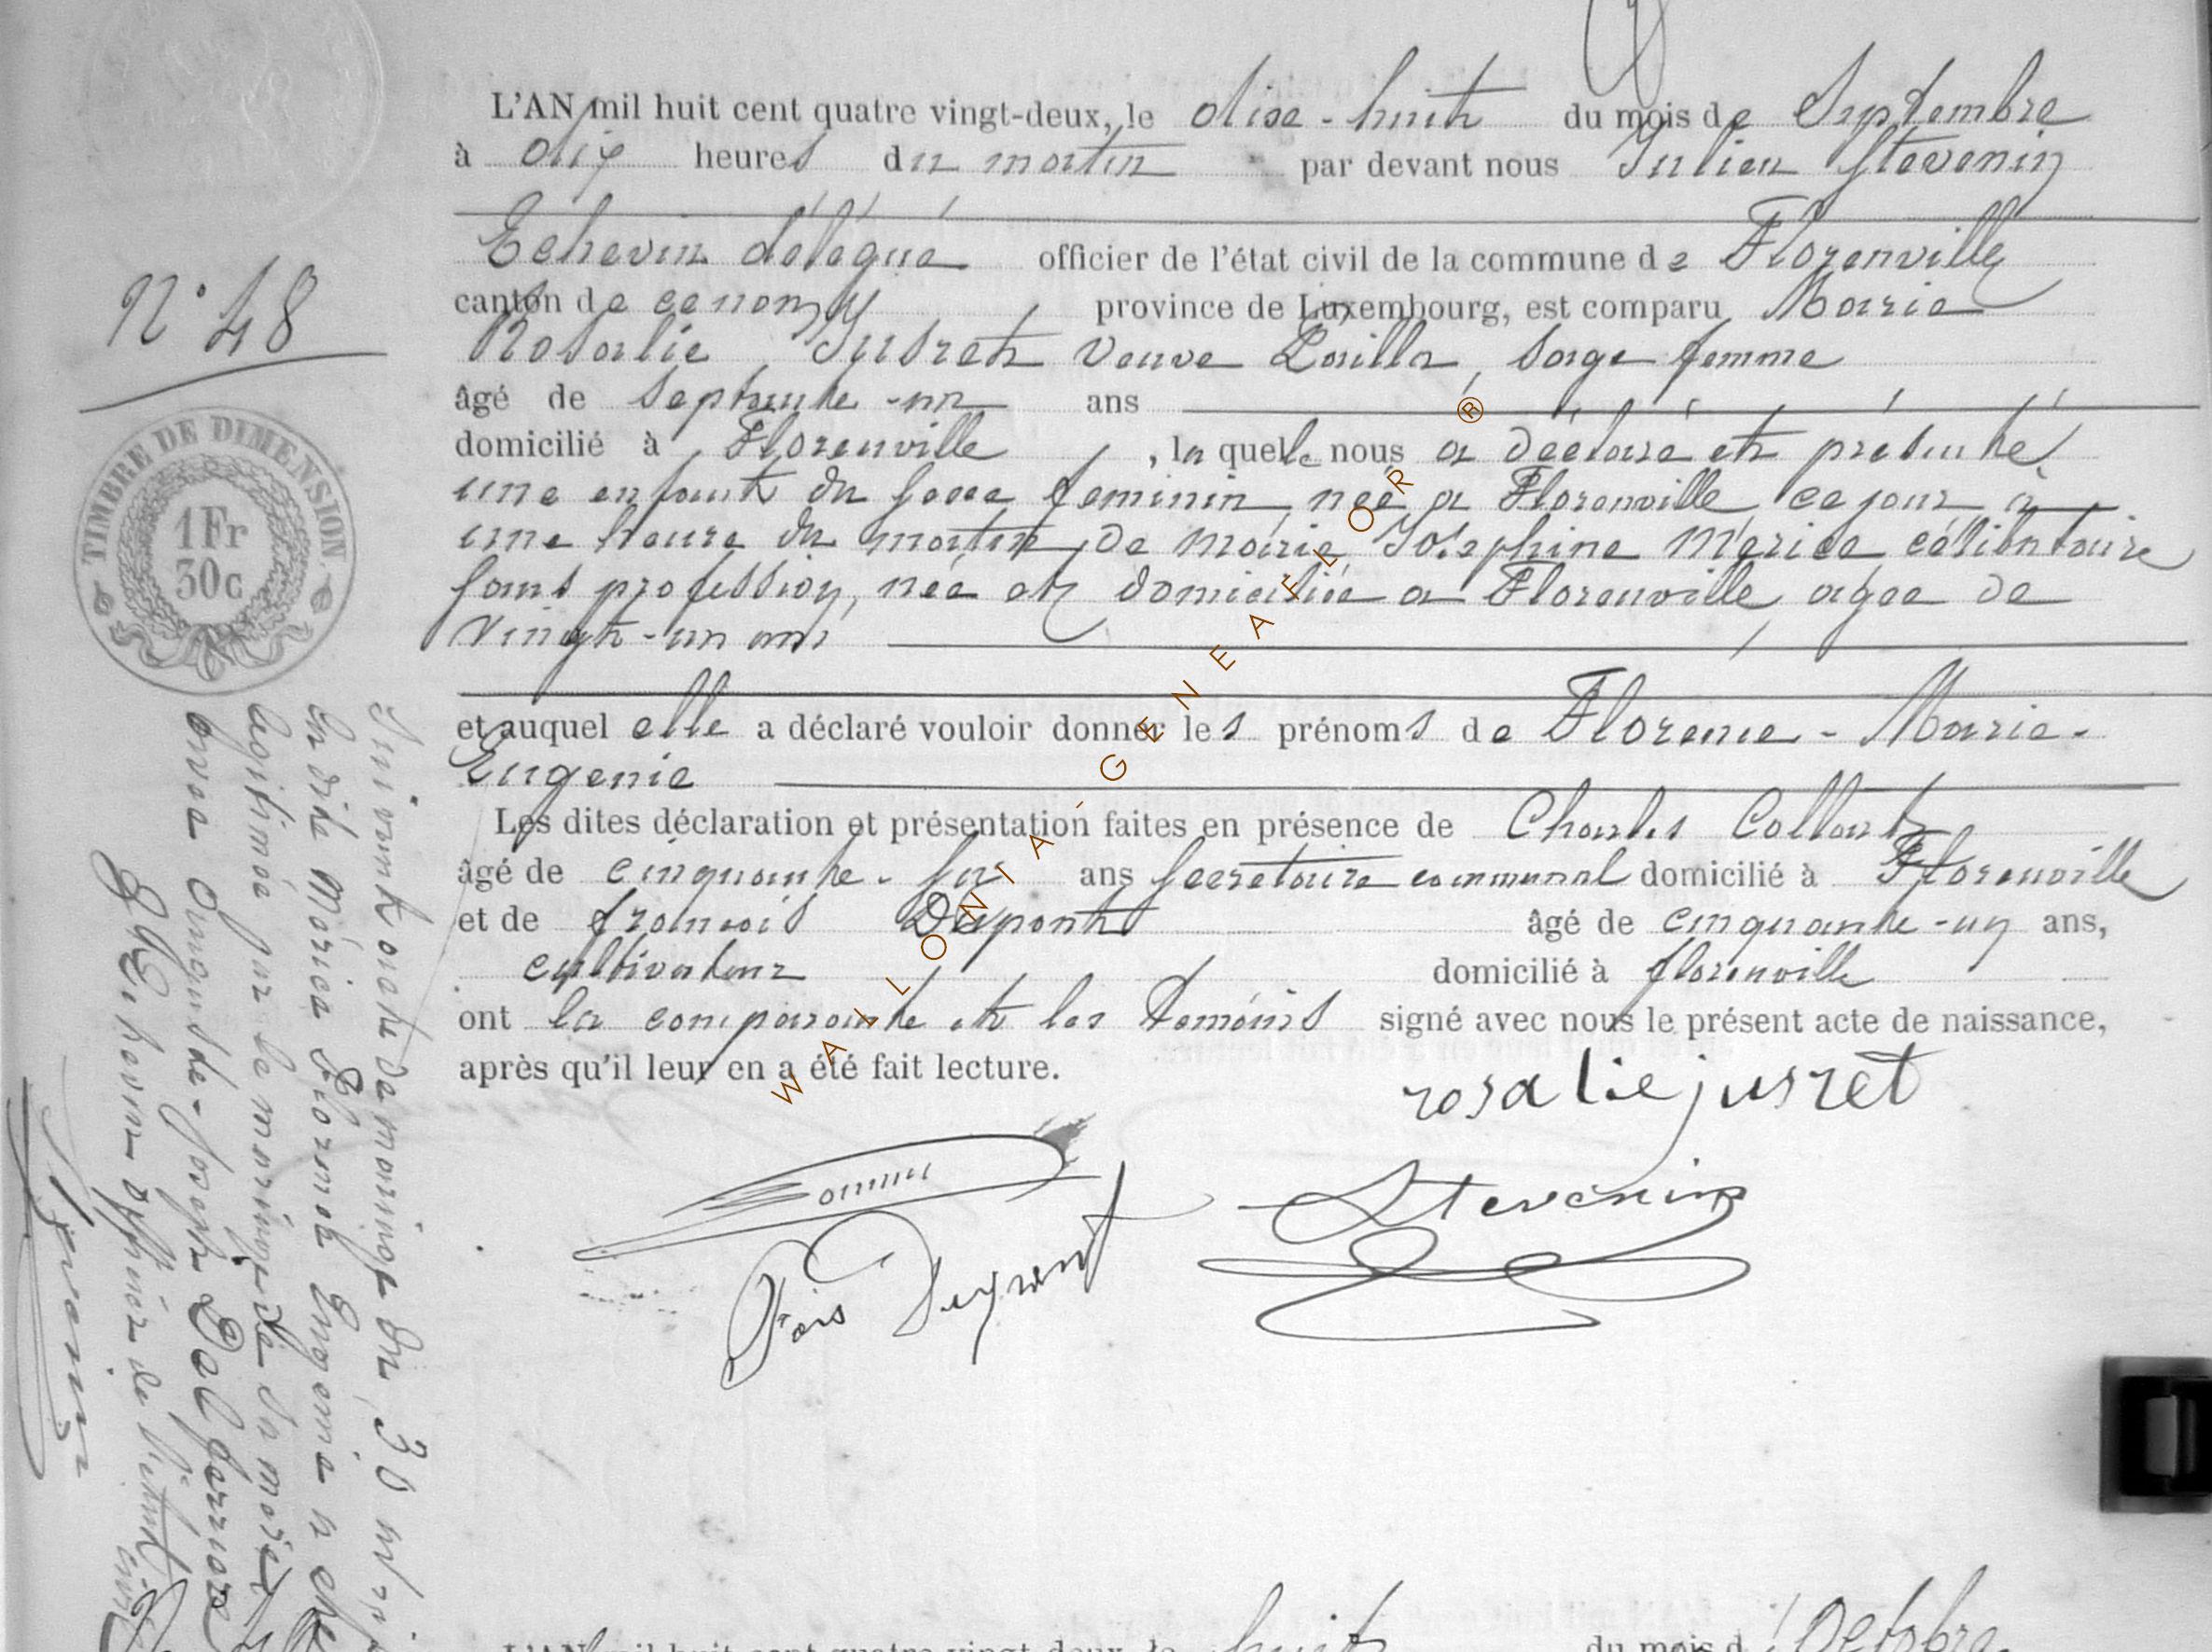 L'AN mil huit cent quatre vingt-deux, le dixe-huit du mois de Septembre
à dix heures du matin par devant nous Julien Stevenin
Echevin délégué officier de l'état civil de la commune de Florenville
canton de province de Luxembourg, est comparu Marie
Rosalie Jusret veuve sage femme
âgé de septante-un ans
domicilié à Florenville, laquelle nous a déclaré et présenté
une enfant du sexe feminin, née a Florenville ce jour à
une heure du matin, de marie Josephine Mérice célibataire
sans profession, née et domiciliée a Florenville, agee de
vingt-un ans
et auquel elle a déclaré vouloir donner les prénoms de Florence - Marie-
Eugenie
Les dites déclaration et présentation faites en présence de Charles
âgé de cinquante- ans secretaire communal domicilié à Florenville
et de francois Dupont âgé de cinquante-un ans,
cultivateur domicilié à florenville
ont la comparante et les temoins signé avec nous le présent acte de naissance,
après qu'il leur en a été fait lecture.
rosalie jusret
Stevenin
Fois Dupont
N° 48
TIMBRE DE DIMENSION
1 Fr
30 c
Suivant acte de mariage du 30
la dite Mérice Eugenie a
légitimée par le mariage de sa mère
avec Auguste-Joseph
L'Echevin officier de l'état
Stevenin
WALLONIA - GENEAFLOR ®
L'AN mil huit cent quatre vingt-deux, le huit du mois d'Octobre